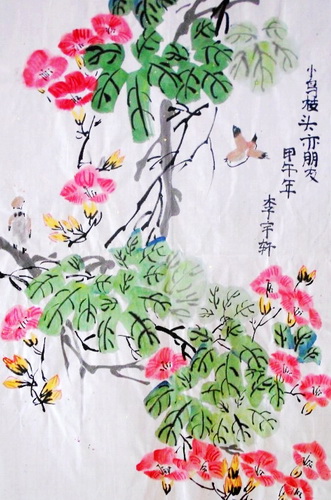 小鸟枝头亦朋友
甲午年
李宇轩